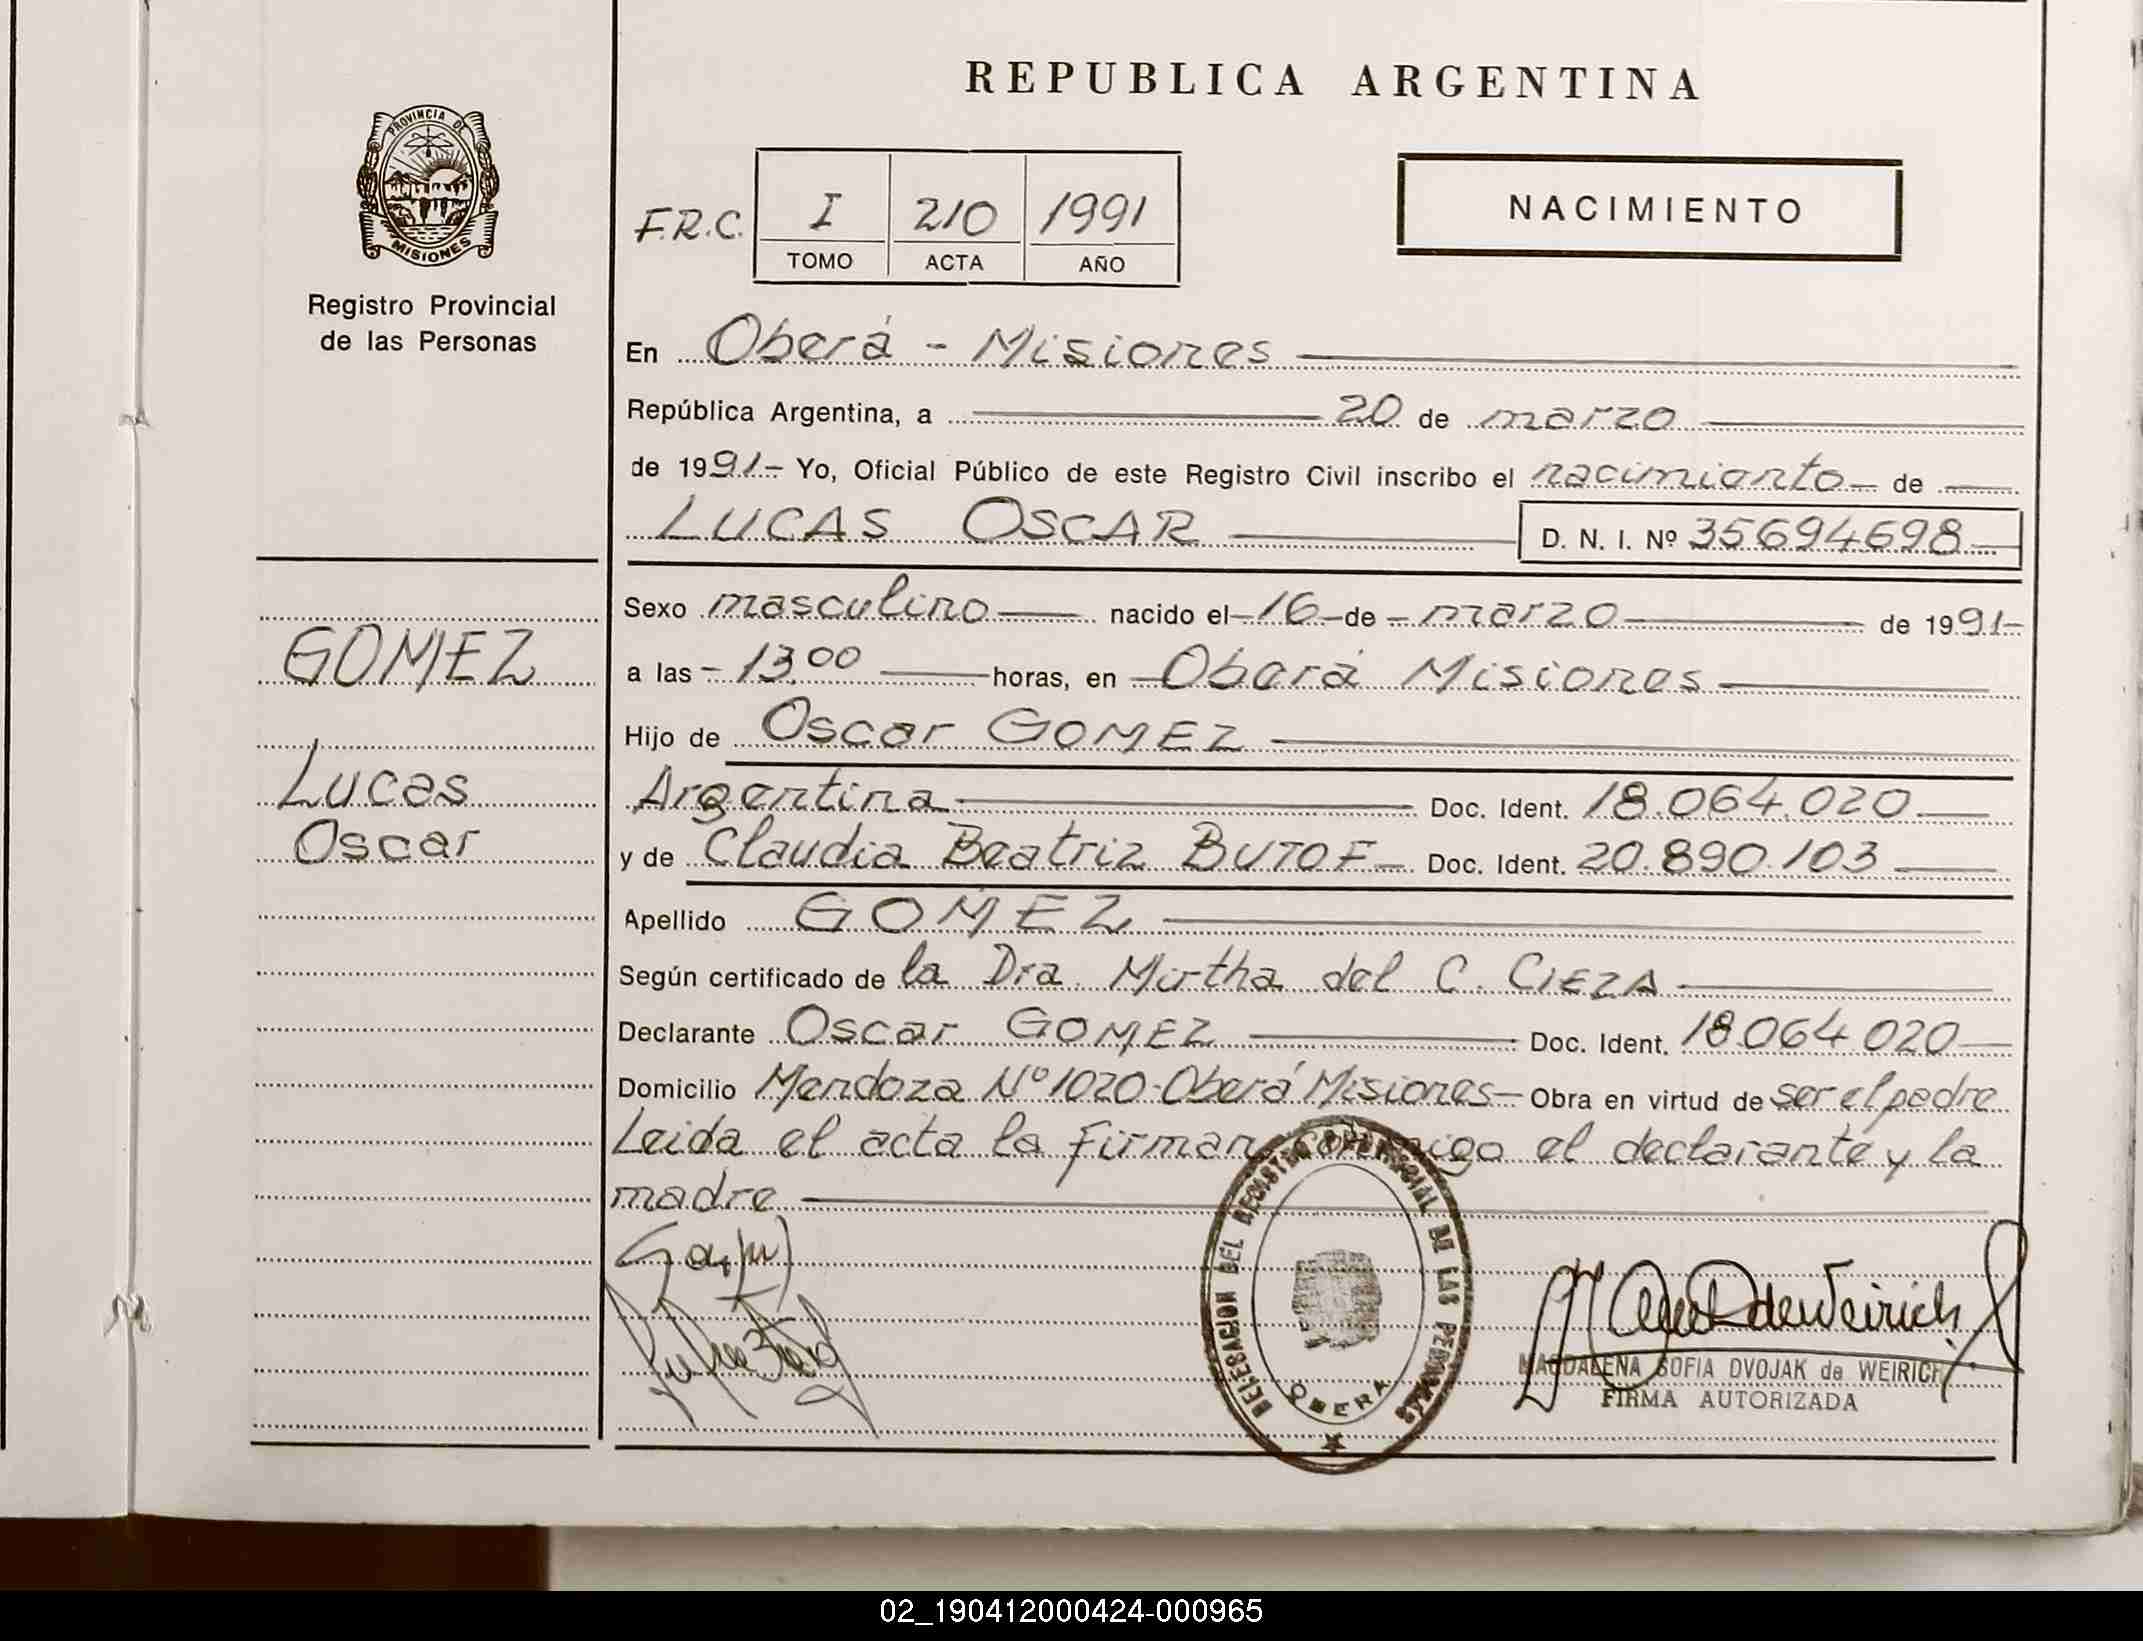 REPUBLICA ARGENTINA
PROVINCIA DE
MISIONES
Registro Provincial
de las Personas
F.R.C. I 210 1991
TOMO ACTA AÑO
NACIMIENTO
En Oberá - Misiones
República Argentina, a 20 de marzo
de 1991.- Yo, Oficial Público de este Registro Civil inscribo el nacimiento de
LUCAS OSCAR D. N. I. Nº 35694698
Sexo masculino nacido el 16 de marzo de 1991
a las 13,00 horas, en Oberá Misiones
Hijo de Oscar GOMEZ
Argentina Doc. Ident. 18.064.020
y de Claudia Beatriz BUTOF Doc. Ident. 20.890.103
Apellido GOMEZ
Según certificado de la Dra. Mirtha del C. CIEZA
Declarante Oscar GOMEZ Doc. Ident. 18.064.020
Domicilio Mendoza Nº 1020-Oberá Misiones Obra en virtud de ser el padre
Leida el acta la firman conmigo el declarante y la
madre
GOMEZ
Lucas
Oscar
DELEGACION DEL REGISTRO PROVINCIAL DE LAS PERSONAS
OBERA
MAGDALENA SOFIA DVOJAK de WEIRICH
FIRMA AUTORIZADA
02_190412000424-000965